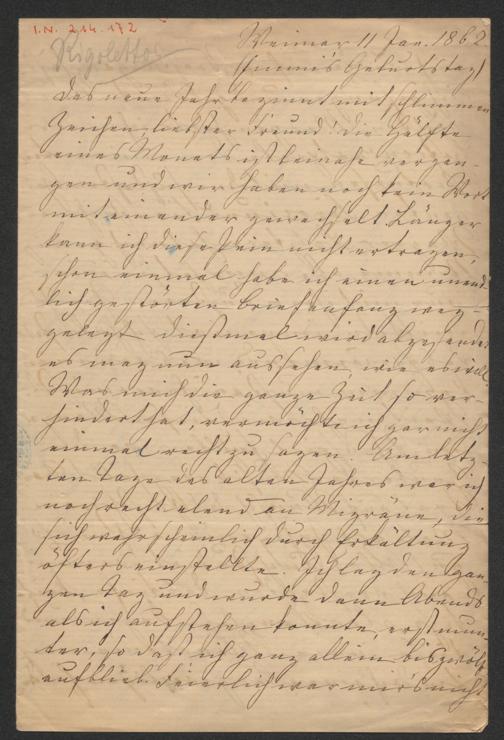 I.N. 214.172
Rigoletto
Weimar 11 Jan. 1862
(Emmi's Geburtstag)
Das neue Jahr beginnt mit schlimmen
Zeichen, liebster Freund! Die Hälfte
eines Monats ist beinahe vergan-
gen und wir haben noch kein Wort
miteinander gewechselt. Länger
kann ich dieses nicht ertragen,
schon einmal habe ich einen unend-
lich gestörten Briefanfang weg-
gelegt diesmal wird abgesendet
es mag nun aussehen, wie es will
Was mich die ganze Zeit so ver-
hindert hat, vermöchte ich gar nicht
einmal recht zu sagen. Am letz-
ten Tage des alten Jahres war ich
noch recht elend an Migräne, die
sich wahrscheinlich durch Erkältung
öfters einstellte. Ich lag den gan-
zen Tag und wurde dann Abends
als ich aufstehen konnte, erst mun-
ter, so daß ich ganz allein bis zwölf
aufblieb. Feierlich war mir's nicht